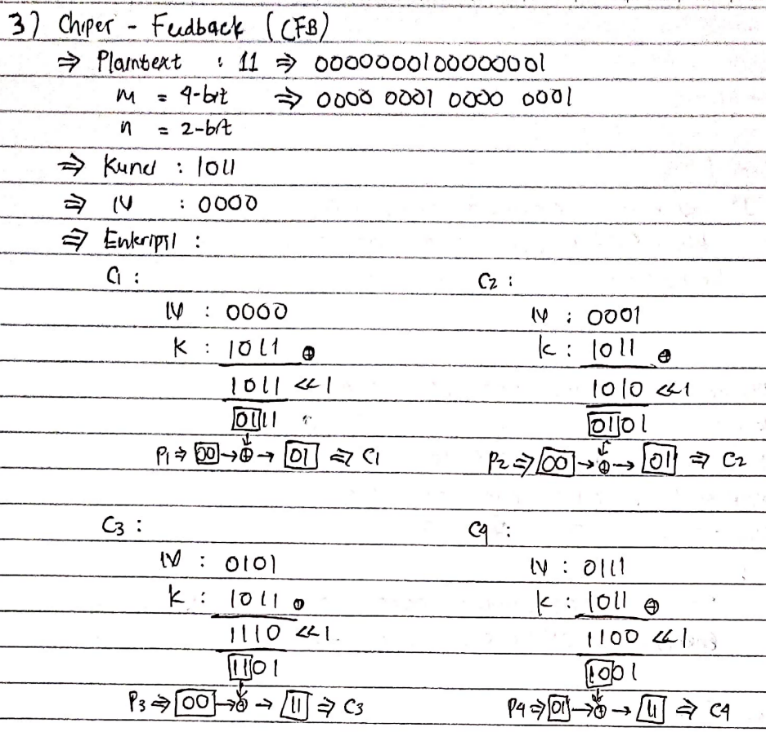 3) Chiper - Feedback (CFB)
⇒ Plaintext : 11 ⇒ 0000000100000001
m = 4-bit ⇒ 0000 0001 0000 0001
n = 2-bit
⇒ Kunci : 1011
⇒ IV : 0000
⇒ Enkripsi :
C1 :
IV : 0000
K : 1011 ⊕
1011 <<1
0111
P1 ⇒ 00 → ⊕ → 01 ⇒ C1
C2 :
IV : 0001
K : 1011 ⊕
1010 <<1
0101
P2 ⇒ 00 → ⊕ → 01 ⇒ C2
C3 :
IV : 0101
K : 1011 ⊕
1110 <<1
1101
P3 ⇒ 00 → ⊕ → 11 ⇒ C3
C4 :
IV : 0111
K : 1011 ⊕
1100 <<1
1001
P4 ⇒ 01 → ⊕ → 11 ⇒ C4